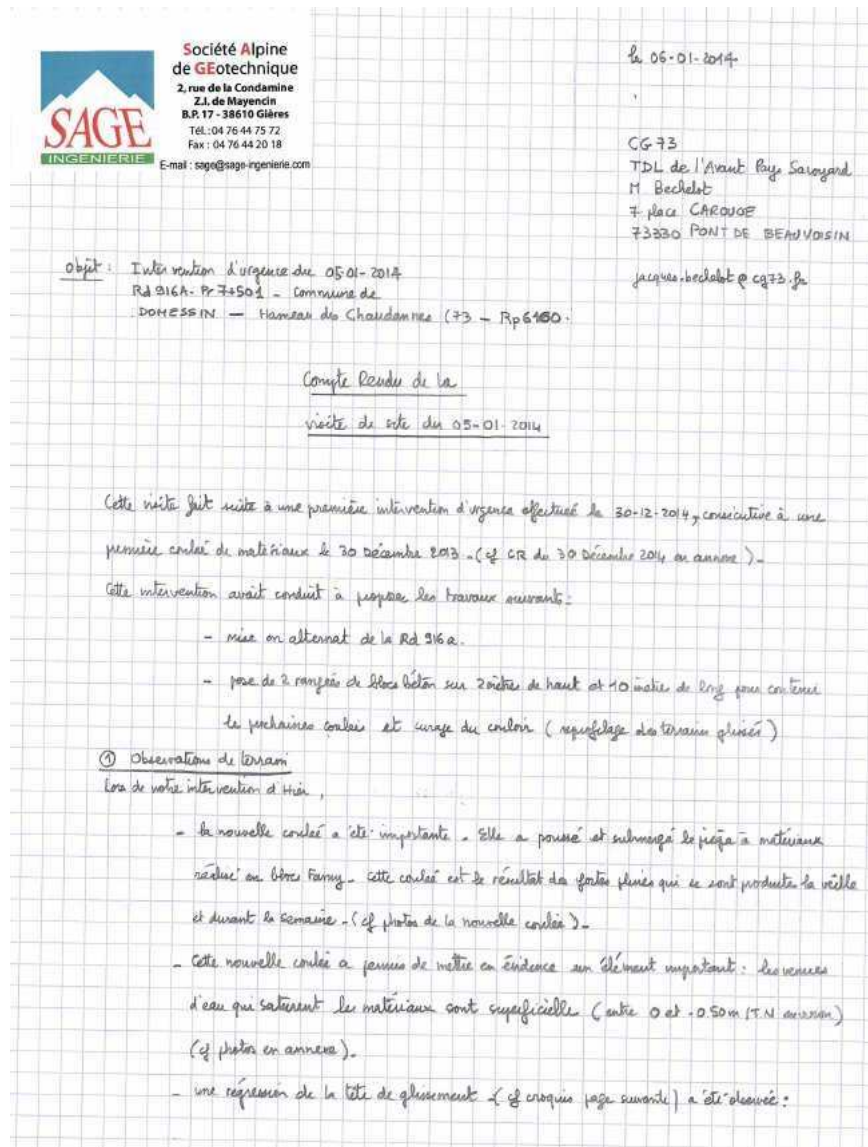 Société Alpine
de GEotechnique
2, rue de la Condamine
Z.I. de Mayencin
B.P. 17 - 38610 Gières
Tél. : 04 76 44 75 72
Fax : 04 76 44 20 18
E-mail : sage@sage-ingenierie.com
SAGE
INGENIERIE
le 06-01-2014
CG 73
TDL de l'Avant Pays Savoyard
M Bechelot
7 place CAROUGE
73330 PONT DE BEAUVOISIN
jacques.bechelot@cg73.fr
Objet : Intervention d'urgence du 05-01-2014
Rd 916A - Pr 7+501 - Commune de
DOMESSIN — Hameau des Chaudannes (73 - Rp6160.
Compte Rendu de la
visite de site du 05-01-2014
Cette visite fait suite à une première intervention d'urgence effectuée le 30-12-2014, consécutive à une
première coulée de matériaux le 30 Décembre 2013 - (cf CR du 30 Décembre 2014 en annexe ) -
Cette intervention avait conduit à proposer les travaux suivants :
- mise en alternat de la Rd 916a.
- pose de 2 rangées de blocs béton sur 2 mètres de haut et 10 mètres de long pour contenir
les prochaines coulées et curage du couloir ( reprofilage des terrains glissés )
① Observations de terrain
Lors de notre intervention d'Hier,
- la nouvelle coulée a été importante - Elle a poussé et submergé le piège à matériaux
réalisé en blocs Famy - cette coulée est le résultat des fortes pluies qui se sont produites la veille
et durant la semaine - (cf photos de la nouvelle coulée ) -
- Cette nouvelle coulée a permis de mettre en évidence un élément important : les venues
d'eau qui saturent les matériaux sont superficielle (entre 0 et -0.50m /T.N
(cf photos en annexe) -
- une régression de la tête de glissement - ( cf croquis page suivante ) a été observée :